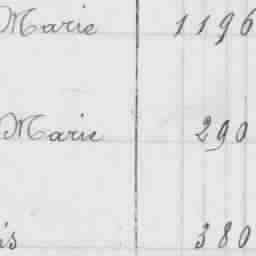 Marie 1196
Marie 290
is 380